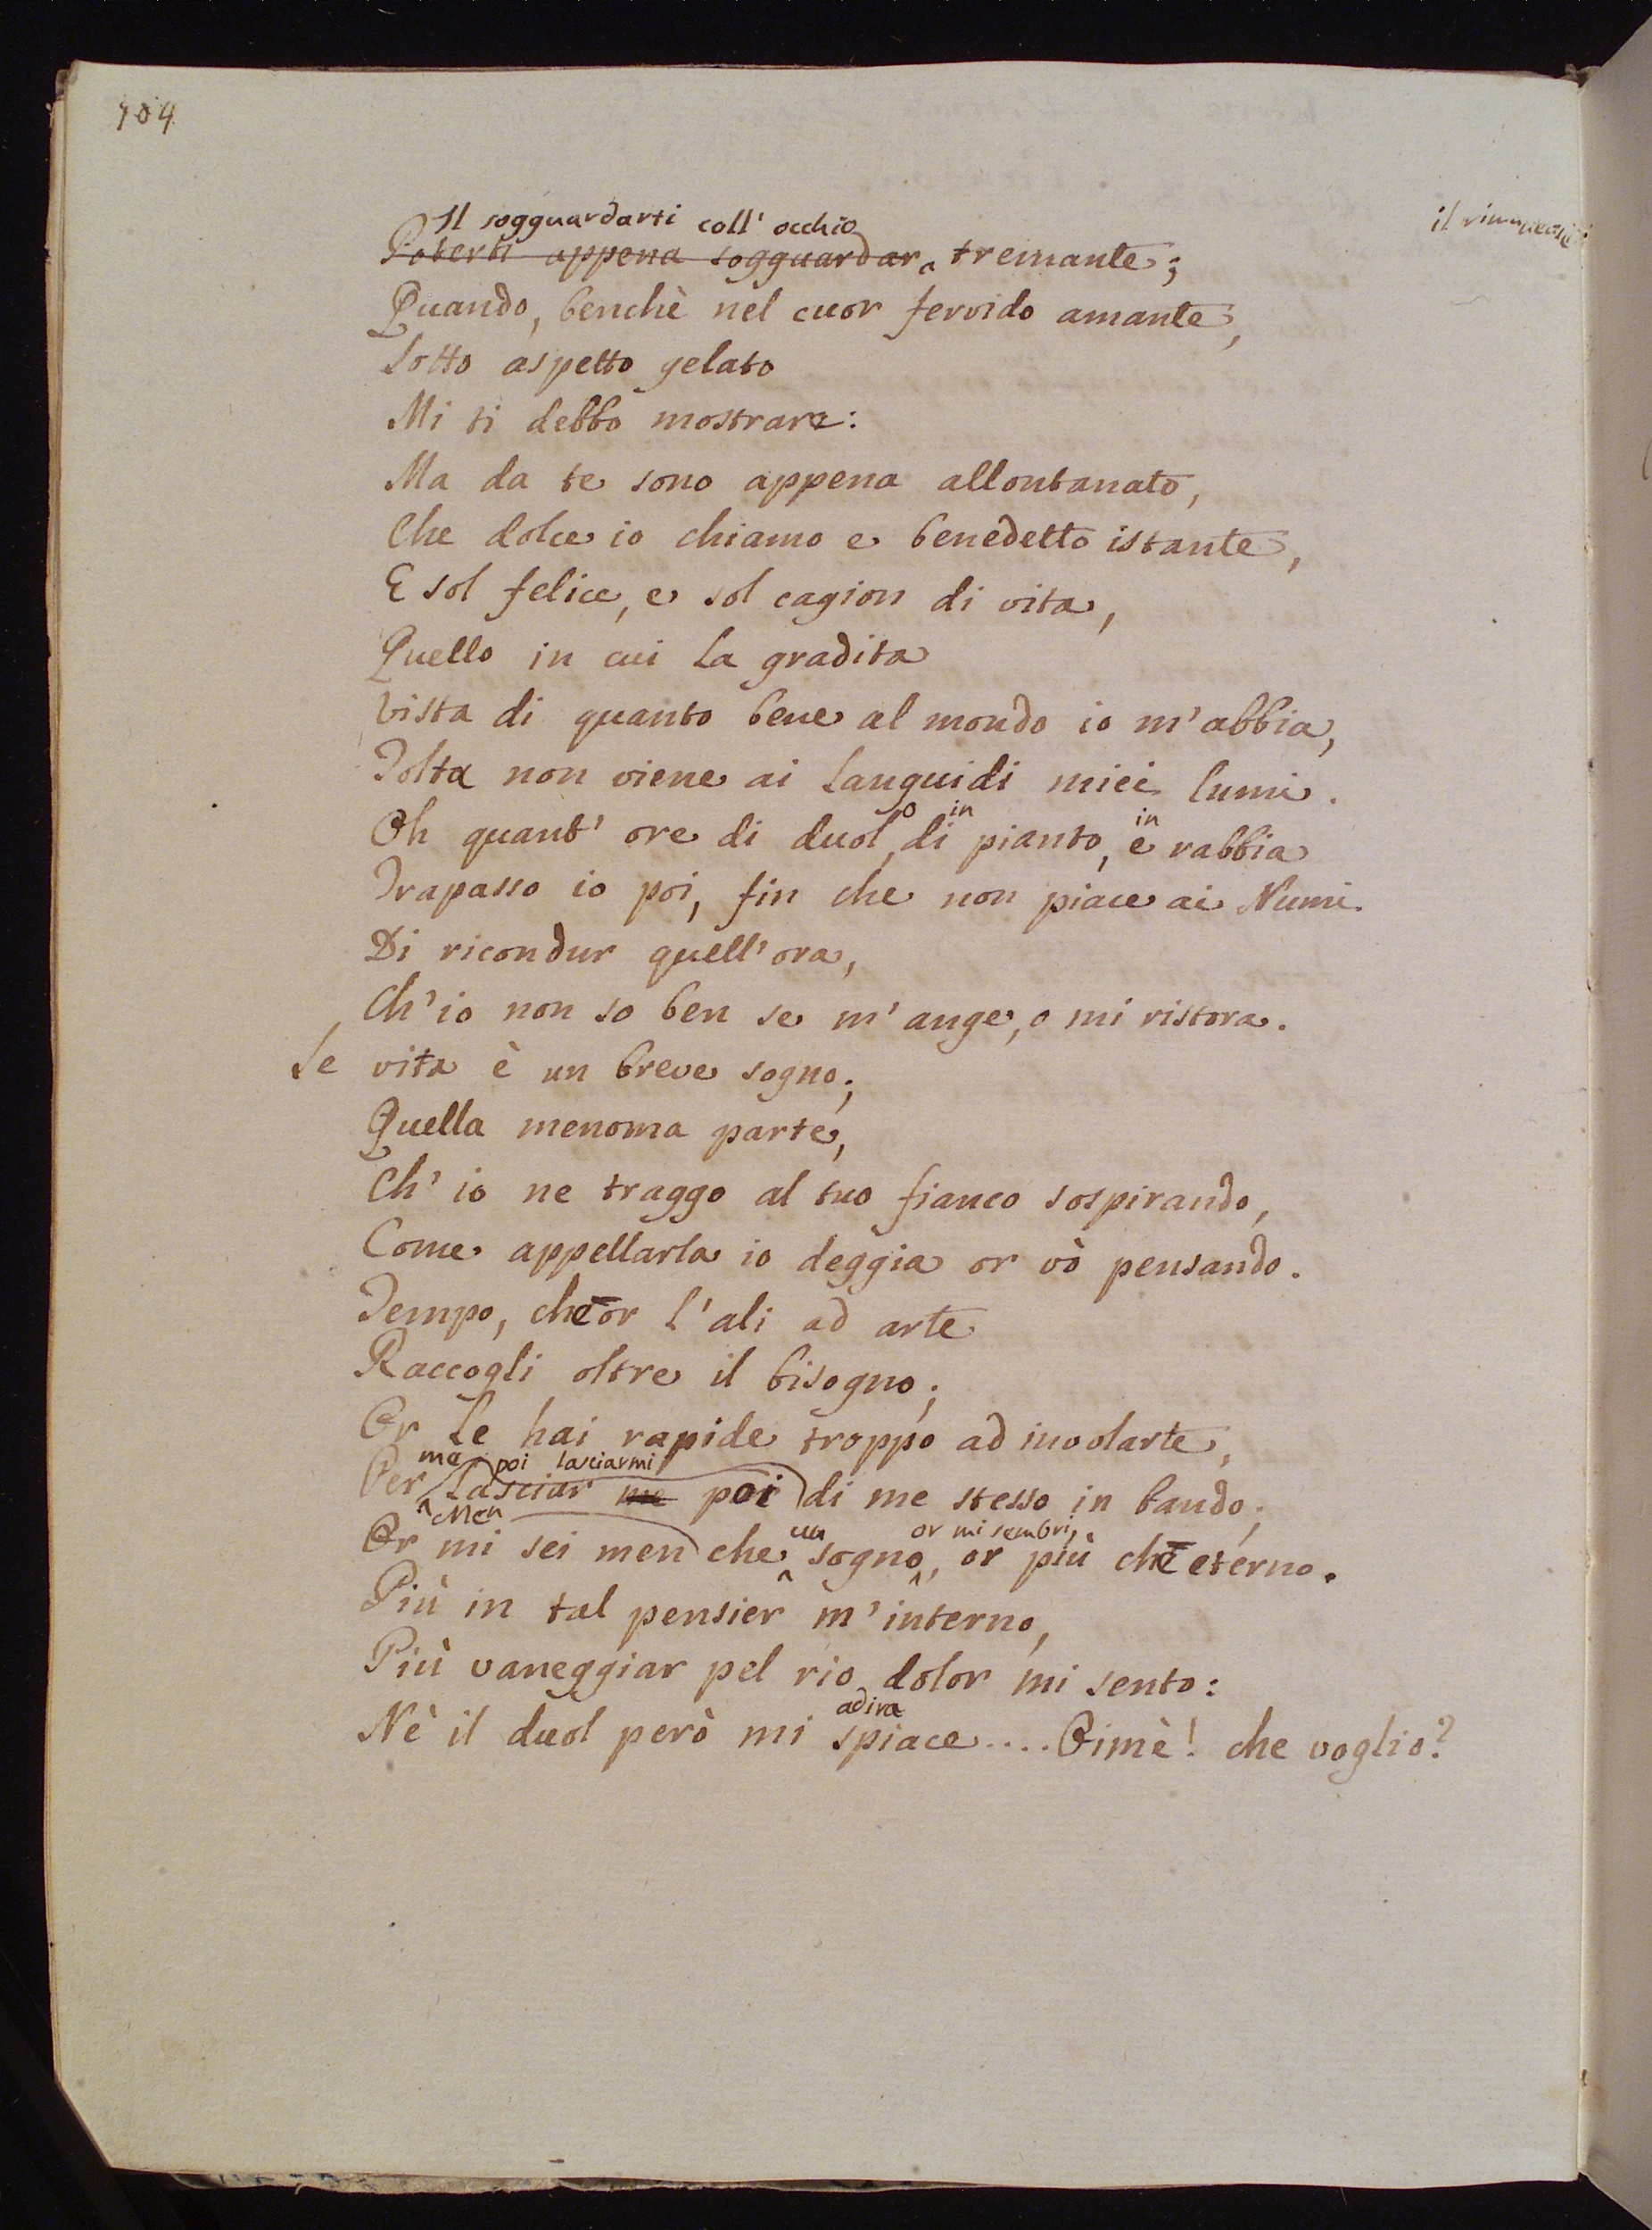 104
Il sogguardarti coll' occhio
Poterti appena sogguardar tremante;
Quando, benchè nel cuor fervido amante,
Sotto aspetto gelato
Mi ti debbo mostrare:
Ma da te sono appena allontanato,
Che dolce io chiamo e benedetto istante,
E sol felice, e sol cagion di vita,
Quello in cui la gradita
Vista di quanto bene al mondo io m'abbia,
Tolta non viene ai languidi miei lumi.
o in in
Oh quant' ore di duol, di pianto, e rabbia
Trapasso io poi, fin che non piace ai Numi
Di ricondur quell'ora,
Ch'io non so ben se m'ange, o mi ristora.
Se vita è un breve sogno;
Quella menoma parte,
Ch' io ne traggo al tuo fianco sospirando,
Come appellarla io deggia or vò pensando.
Tempo, che or l'ali ad arte
Raccogli oltre il bisogno;
Or le hai rapide troppo ad involarte,
me poi lasciarmi
Per lasciar me poi di me stesso in bando;
Men un or mi sembri,
Or mi sei men che sogno, or più che eterno.
Più in tal pensier m'interno,
Più vaneggiar pel rio dolor mi sento:
adira
Nè il duol però mi spiace.... Oimè! che voglio?